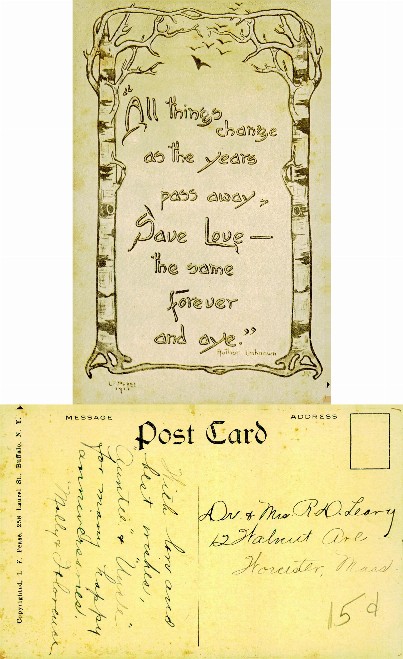 "All things
change
as the years
pass away,
Save Love —
the same
forever
and aye."
Author Unknown
1911
MESSAGE
ADDRESS
Post Card
Copyrighted, I. F. Pease, 258 Laurel St. Buffalo, N. Y.
With love and
best wishes,
"Auntie" & Uncle
for many happy
anniversaries.
Molly & Florence
Dr & Mrs R. D. Leary
12 Walnut Ave
Worcester, Mass.
15¢